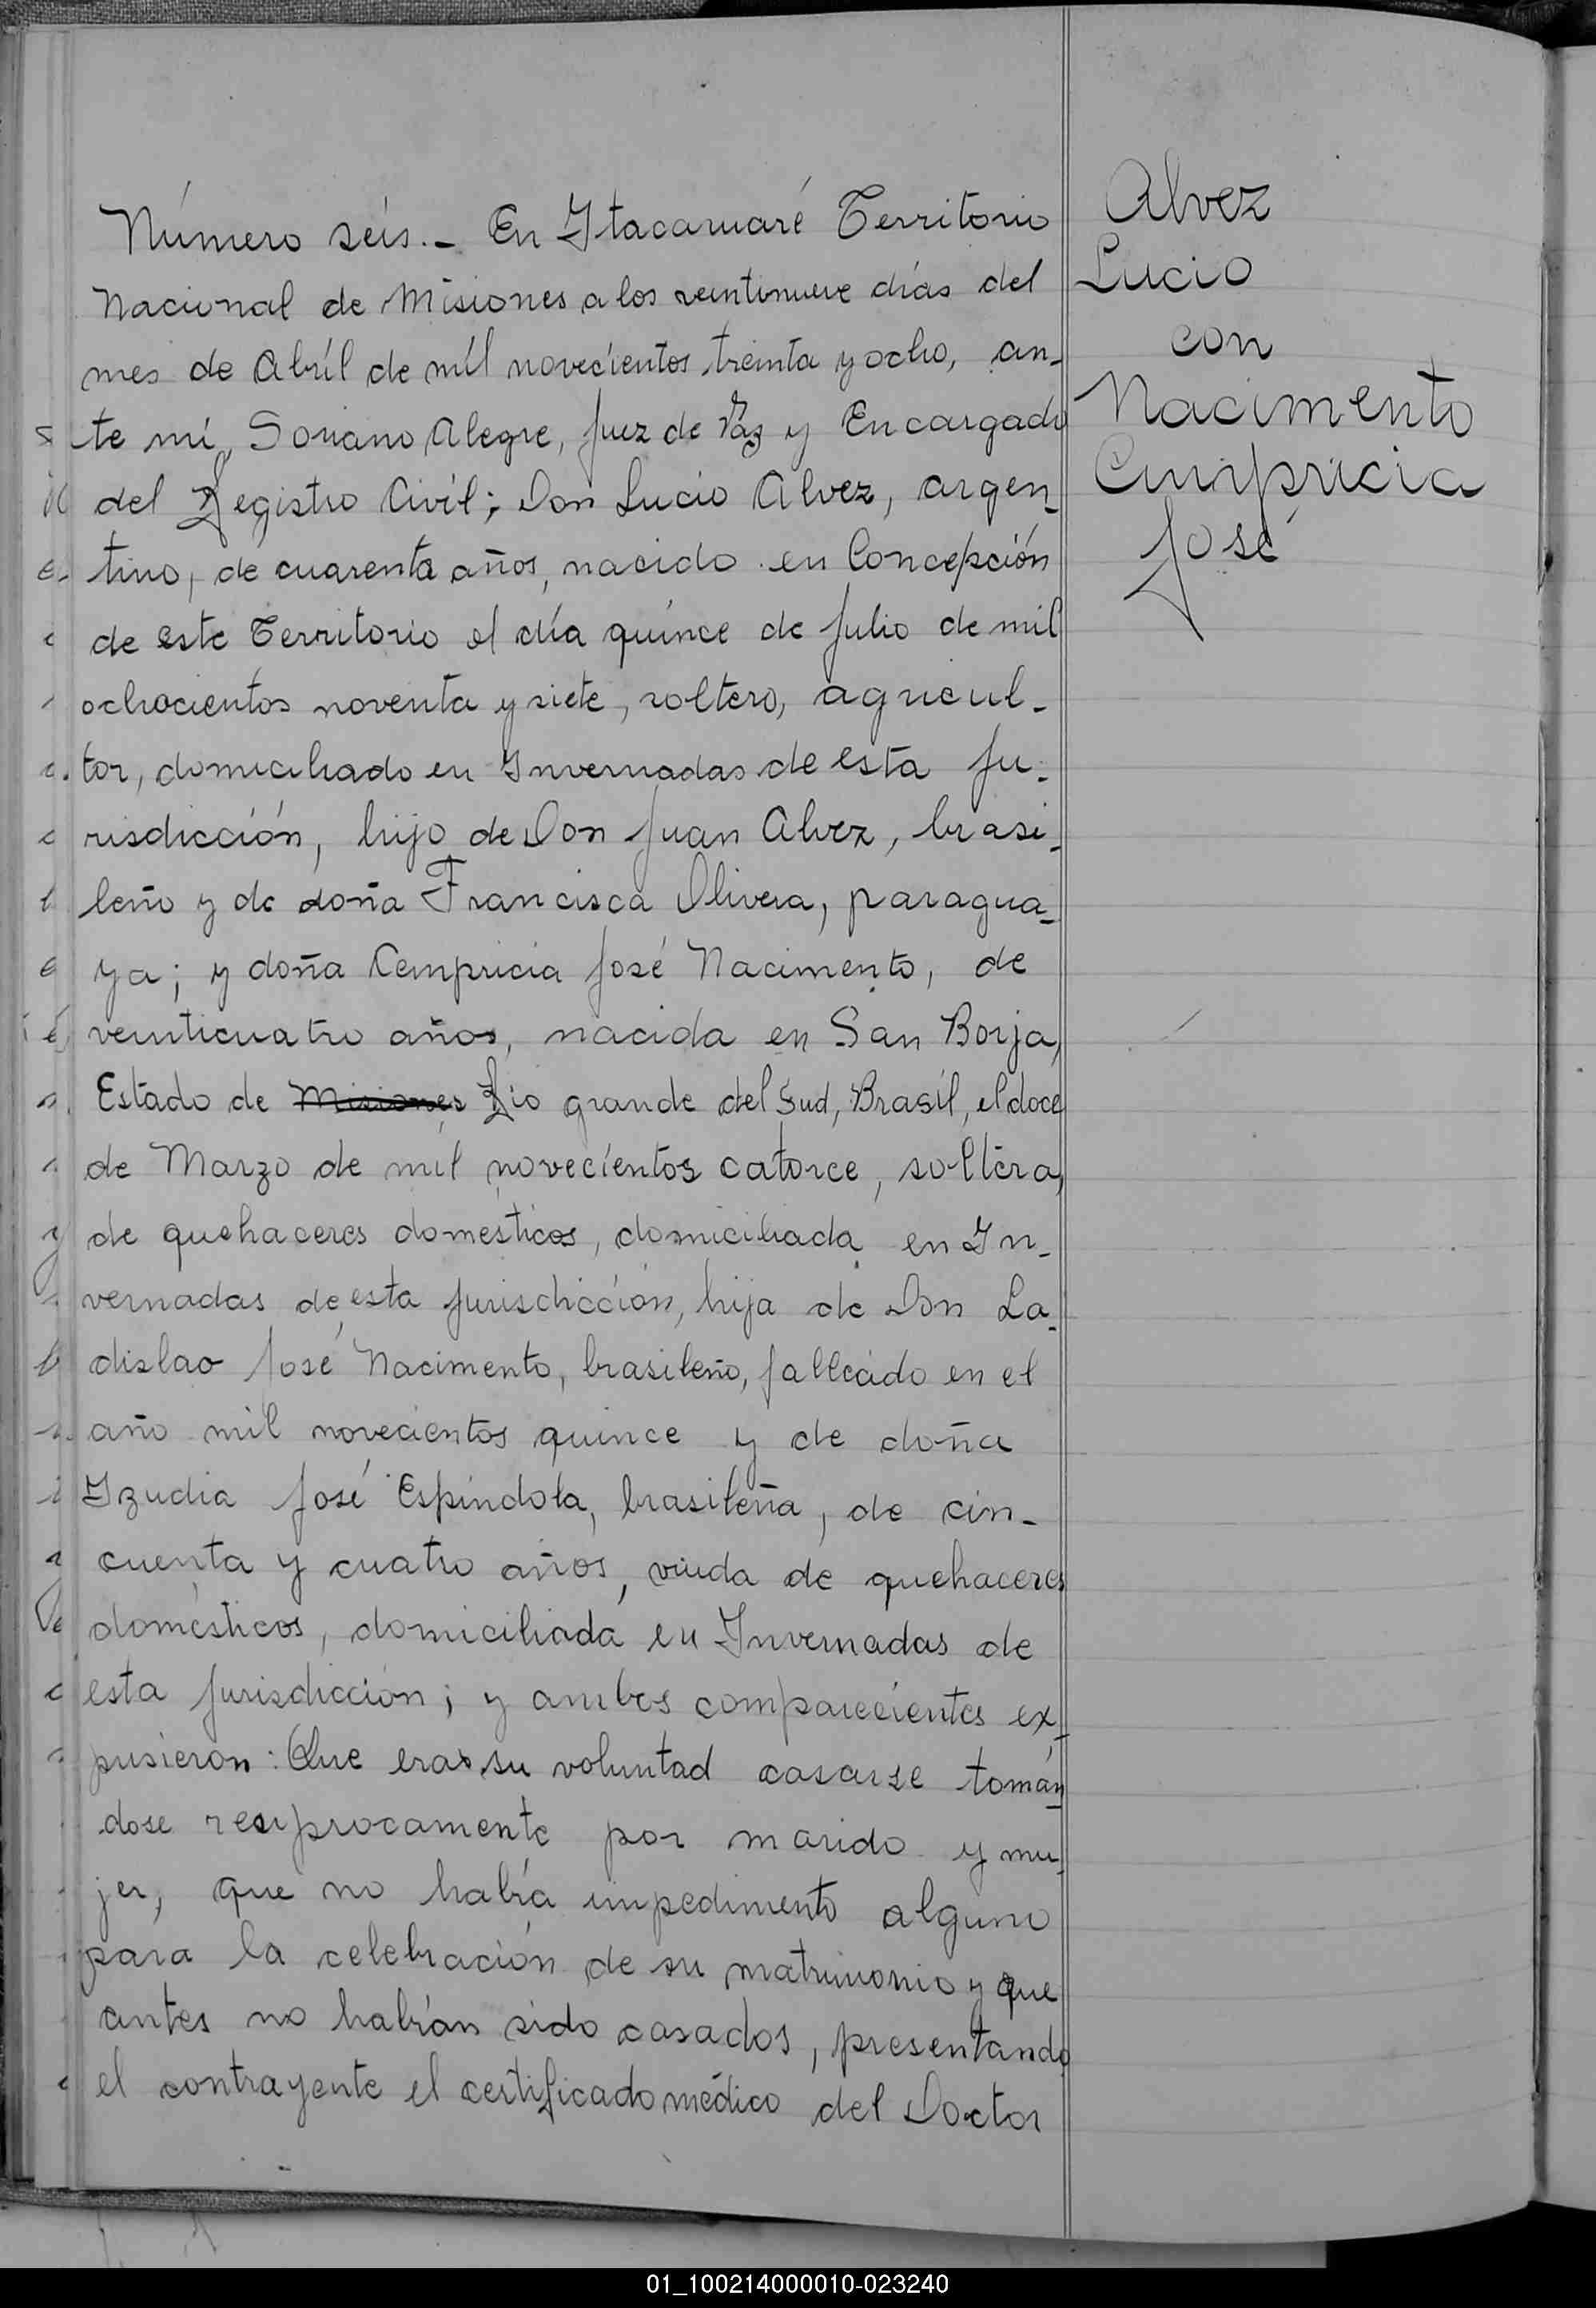 Número seis.- En Itacaruaré Territorio
Nacional de Misiones a los veintinueve días del
mes de Abríl de míl novecientos treinta y ocho, an-
te mí, Soriano Alegre, Juez de Paz y Encargado
del Registro Civíl; Don Lucio Alvez, argen-
tino, de cuarenta años, nacido en Concepción
de este Territorio el día quince de Julio de mil
ochocientos noventa y siete, soltero, agricul-
tor, domiciliado en Invernadas de esta Ju-
risdicción, hijo de Don Juan Alvez, brasi-
leño y de doña Francisca Olivera, paragua-
ya; y doña Cempricia José Nacimento, de
veinticuatro años, nacida en San Borja,
Estado de Misiones Rio grande del Sud, Brasíl, el doce
de Marzo de míl novecientos catorce, soltera,
de quehaceres domésticos, domiciliada en In-
vernadas de esta Jurisdicción, hija de Don La-
dislao José Nacimento, brasileño, fallecido en el
año mil novecientos quince y de doña
Izudia José Espíndola, brasileña, de cin-
cuenta y cuatro años, viuda de quehaceres
domésticos, domiciliada en Invernadas de
esta Jurisdicción; y ambos comparecientes ex-
pusieron: Que era su voluntad casarse tomán-
dose reciprocamente por marido y mu-
jer, que no había impedimento alguno
para la celebración de su matrimonio y que
antes no habían sido casados, presentando
el contrayente el certificado médico del Doctor
Alvez
Lucio
con
Nacimento
José
01_100214000010-023240